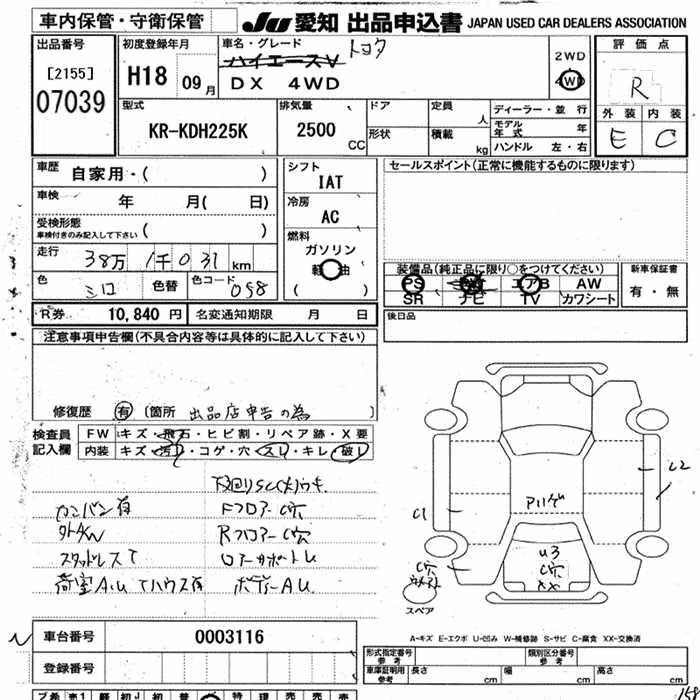 車内保管・守衛保管 JU 愛知 出品申込書 JAPAN USED CAR DEALERS ASSOCIATION
出品番号
[2155]
07039
初度登録年月
H18 09月
車名・グレード トヨタ
ハイエースV
DX 4WD
2WD
4WD
評価点
R
外装 内装
E C
型式
KR-KDH225K
排気量
2500 CC
ドア
形状
定員 人
積載 kg
ディーラー・並行
モデル年式 年
ハンドル 左・右
車歴
自家用・( )
車検 年 月( 日)
受検形態
車検付きのみ記入して下さい ( )
走行 38万 1千031 km
色 シロ 色替 色コード 058
シフト
IAT
冷房
AC
燃料
ガソリン
軽油
( )
セールスポイント(正常に機能するものに限ります)
装備品(純正品に限り○をつけてください)
PS PW エアB AW
SR ナビ TV カワシート
新車保証書
有・無
R券 10,840円 名変通知期限 月 日
後日品
注意事項申告欄(不具合内容等は具体的に記入して下さい)
修復歴 有 [箇所 出品店申告の為 ]
検査員記入欄
FW キズ・飛石・ヒビ割・リペア跡・X要
内装 キズ・汚れ・コゲ・穴・スレ・キレ・破レ
カンバン有 Fフロアー C穴
Rフロアー C穴
スタッドレスT ロアーサポートU
荷室A.U Tハウス有 ボディーAU
アリゲ
C1
C2
U3
C穴
XX
C穴
スペア
A-キズ E-エクボ U-凹み W-補修跡 S-サビ C-腐食 XX-交換済
車台番号 0003116
登録番号
形式指定番号
参考
類別区分番号
参考
車庫証明用
参考
長さ cm 幅 cm 高さ cm